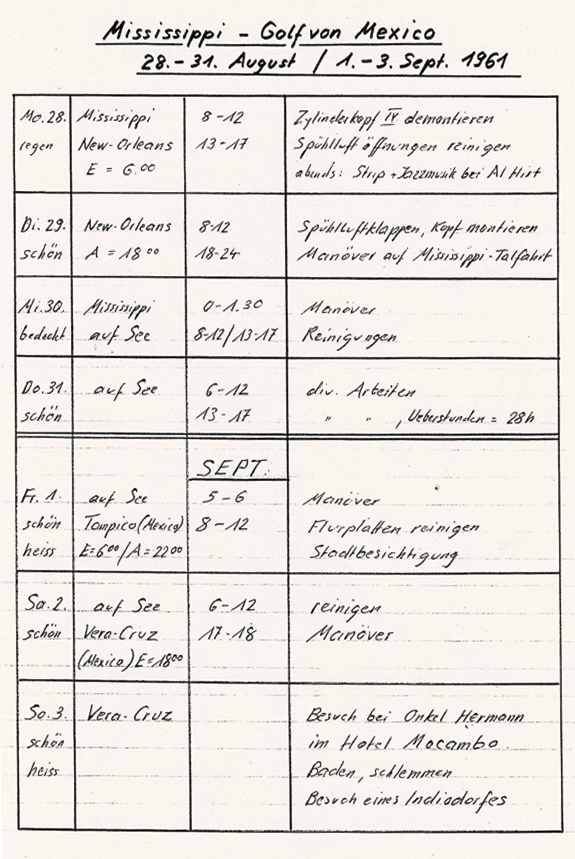 Mississippi - Golf von Mexico
28.-31. August / 1.-3. Sept. 1961
Mo. 28. Mississippi 8-12 Zylinderkopf IV demontieren
regen New-Orleans 13-17 Spühlluftöffnungen reinigen
E = 6.00 abends: Strip + Jazzmusik bei Al Hirt
Di. 29. New-Orleans 8-12 Spühlluftklappen, Kopf montieren
schön A = 18 00 18-24 Manöver auf Mississippi-Talfahrt
Mi. 30. Mississippi 0-1.30 Manöver
bedeckt auf See 8-12/13-17 Reinigungen
Do. 31. auf See 6-12 div. Arbeiten
schön 13-17 " " , Ueberstunden = 28h
SEPT.
Fr. 1. auf See 5-6 Manöver
schön Tampico (Mexico) 8-12 Flurplatten reinigen
heiss E=6 00 / A=22 00 Stadtbesichtigung
Sa. 2. auf See 6-12 reinigen
schön Vera-Cruz 17-18 Manöver
(Mexico) E=18 00
So. 3. Vera-Cruz Besuch bei Onkel Hermann
schön im Hotel Mocambo.
heiss Baden, schlemmen
Besuch eines Indiodorfes